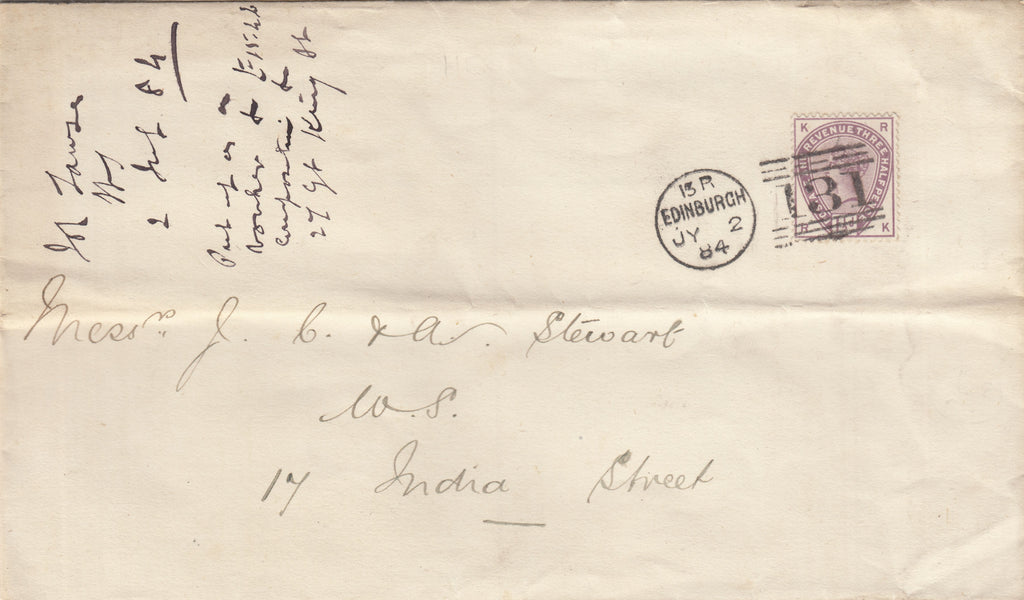 Jn Tawse
WS
2 July 84
Put up as a
Voucher to
Composition to
27 Gt King St
13 R
EDINBURGH
JY 2
84
131
REVENUE THREE HALFPENCE
K R
R K
Messrs. J. C. & A. Stewart
W. S.
17 India Street